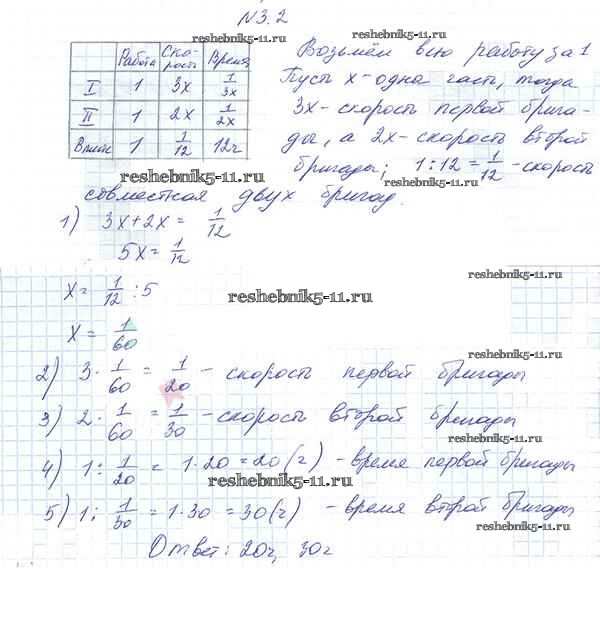 N3.2
reshebnik5-11.ru
Работа Скорость Время
I 1 3x 1/3x
II 1 2x 1/2x
Вместе 1 1/12 12ч
Возьмём всю работу за 1
Пусть x-одна часть, тогда
3x-скорость первой брига-
ды, а 2x-скорость второй
бригады; 1:12 = 1/12 -скорость
reshebnik5-11.ru
reshebnik5-11.ru
совместная двух бригад.
1) 3x+2x = 1/12
5x = 1/12
reshebnik5-11.ru
x = 1/12 : 5
reshebnik5-11.ru
x = 1/60
reshebnik5-11.ru
2) 3 · 1/60 = 1/20 - скорость первой бригады
3) 2 · 1/60 = 1/30 - скорость второй бригады
reshebnik5-11.ru
4) 1 : 1/20 = 1·20 = 20 (ч) - время первой бригады
reshebnik5-11.ru
5) 1 : 1/30 = 1·30 = 30 (ч) - время второй бригады
reshebnik5-11.ru
Ответ: 20ч, 30ч